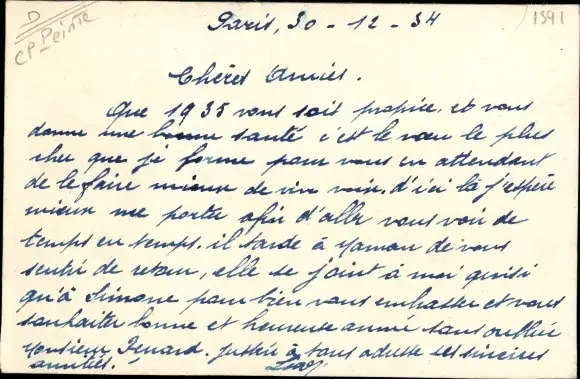 D
CP_Peinte
1591
Paris, 30 - 12 - 34
Chères Amies.
Que 1935 vous soit propice, et vous
donne une bonne santé c'est le vœu le plus
cher que je forme pour vous en attendant
de le faire mieux de vive voix. d'ici là j'espère
mieux me porter afin d'aller vous voir de
temps en temps. il tarde à Maman de vous
sentir de retour, elle se joint à moi ainsi
qu'à Simone pour bien vous embrasser et vous
souhaiter bonne et heureuse année sans oublier
Monsieur Fenard. à tous adresse ses sincères
amitiés.